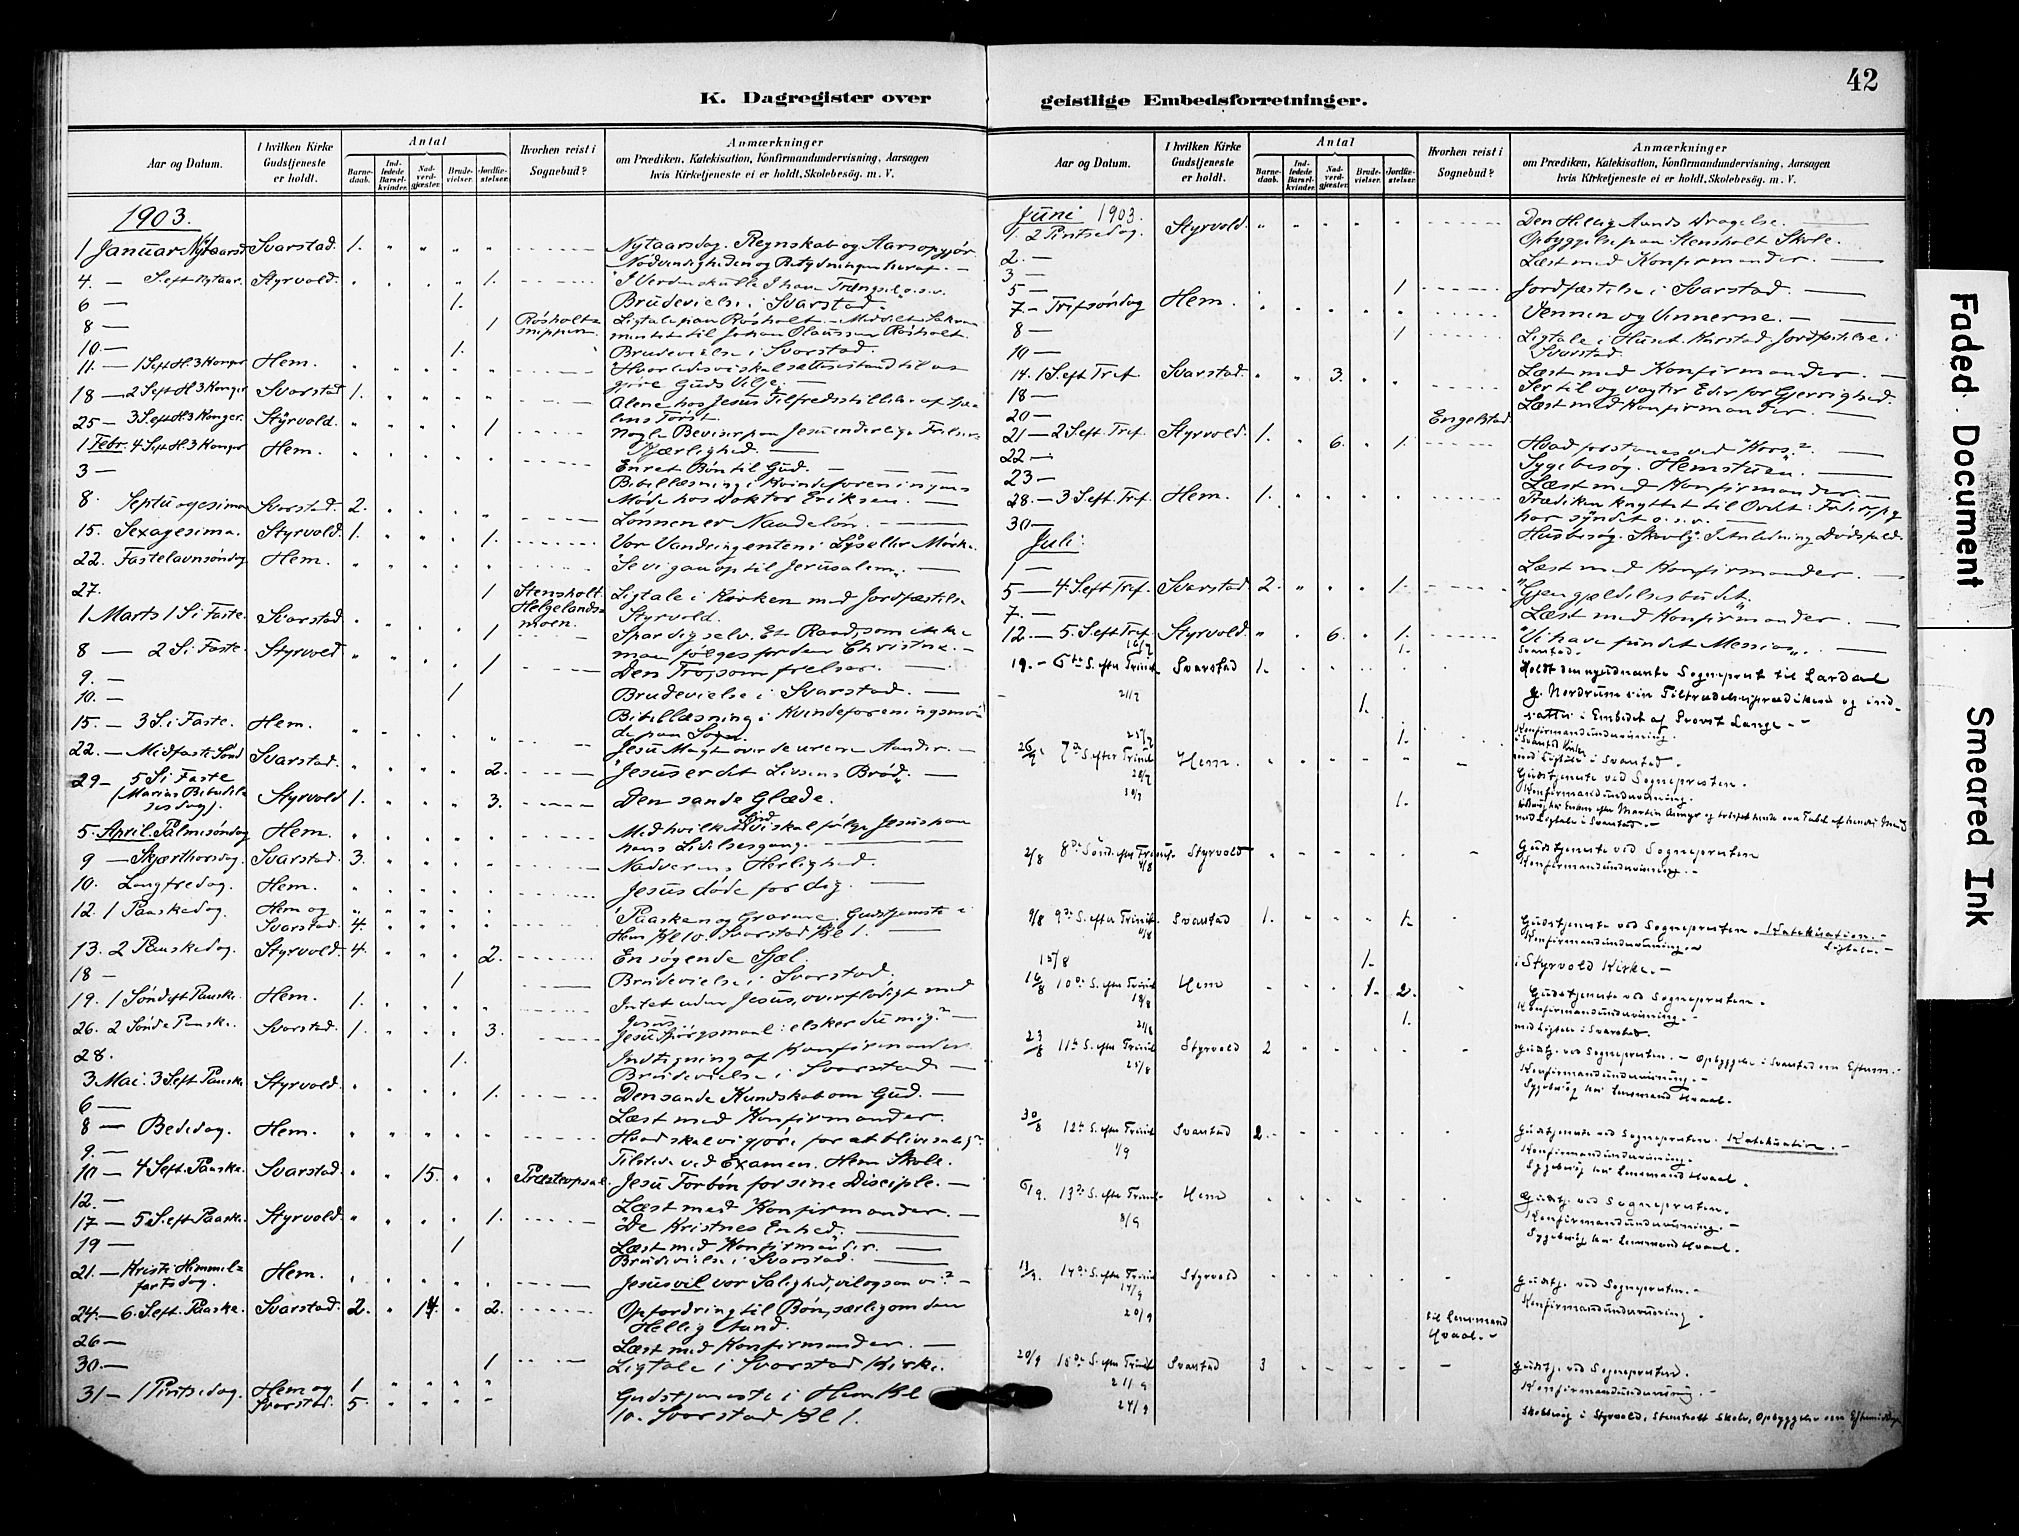 42
K. Dagregister over
geistlige Embedsforretninger.
Aar og Datum.
I hvilken Kirke Gudstjeneste er holdt.
Antal
Barnedaab.
Indledede Barselkvinder.
Nadverdgjæster.
Brudevielser.
Jordfæstelser.
Hvorhen reist i Sognebud?
Anmærkninger
om Prædiken, Katekisation, Konfirmandundervisning, Aarsagen
hvis Kirketjeneste ei er holdt, Skolebesøg. m. V.
1903.
1 Januar Nytaarsd. Svarstad. 1. Nytaarsdag. Regnskab og Aarsopgjør
Nødvendigheden og Betydningen heraf. —
4. — S. eft Nytaar. Styrvold. 1. "I Verden skulle I have Trængsel" o. s. v.
6 — 1. Brudevielse i Svarstad.
8 — 1 Ligtale paa Røsholt. — Meddelt Sakra-
mentet til Johan Olaussen Røsholt.
10 — 1. Brudevielse i Svarstad.
11. — 1 S eft H. 3 Konger Hem.
gjøre Guds Vilje. —
18 — 2 S eft H 3 Konger Svarstad 1. Alene hos Jesus Tilfredsstillelse af Sjæ-
lens Tørst
25 — 3 S eft H. 3 Konger. Styrvold. 1 Nogle Beviser paa Jesu underlige Frelser-
Kjærlighed. —
1 Febr. 4 S eft H. 3 Konger Hem. En ret Bøn til Gud. —
3 — Bibellæsning i Kvindeforeningens
Møde hos Doktor Eriksen. —
8. Septuagesima Svarstad. 2. Lønnen er Naadeløn. —
15. Sexagesima. Styrvold. 1. 1. Vor Vandring enten i Lys eller Mørke.
22. Fastelavnsøndag Hem. "Se vi gaa op til Jerusalem".
27. 1 Stensholt. Ligtale i Kirken med Jordfæstelse
Helgelandsmoen. Styrvold.
1 Marts 1 S i Faste. Svarstad. 1 Spar dig selv. Et Raad, som ikke
maa følges for den Christne. —
8 — 2 S i Faste. Styrvold 1 Den Tro, som frelser. —
9. —
10. — 1 Brudevielse i Svarstad. —
Bibellæsning i Kvindeforeningsmø-
15. — 3 S. i Faste. Hem. Jesu Magt over de urene Aander. —
22. — Midfaste Sønd Svarstad. 2. "Jesus er det Livsens Brød". —
29 — 5 S i Faste (Mariæ Bebudelsesdag). Styrvold 1. 3. Den sande Glæde.
5. April. Palmesøndag Hem. Med hvilket Sind vi skal følge Jesus paa
hans Lidelsesgang. —
9 — Skjærthorsdag. Svarstad. 3. Nadverens Herlighed.
10. Langfredag. Hem. Jesus døde for dig. —
12. 1 Paaskedag. Hem og Svarstad 4. "Paasken og Gravene. Gudstjeneste i
Hem Kl 10. Svarstad Kl 1. —
13. 2 Paaskedag. Styrvold. 4. 2. En søgende Sjæl.
18 — 1 Brudevielse i Svarstad.
19. 1 Sønd eft Paaske. Hem. 1. Intet uden Jesus, overflødigt med
Jesus.
26. 2 Sønd e Paaske. Svarstad. 1. 3. Jesu Spørgsmaal: elsker du mig? —
Indtegning af Konfirmander.
28. 1. Brudevielse i Svarstad —
3 Mai. 3 S eft Paaske Styrvold. 1. Den sande Kundskab om Gud. —
6 — Læst med Konfirmander.
8 — Bededag. Hem. Hvad skal vi gjøre for at blive salig?
9. — Tilstede ved Examen. Hem Skole.
10 — 4 S eft. Paaske. Svarstad. 15. Jesu Forbøn for sine Disciple. —
12. — Læst med Konfirmander. —
17 — 5 S. eft Paaske. Styrvold. 1. "De Kristnes Enhed". —
19 — 1 Læst med Konfirmander. —
Brudevielse i Svarstad. —
21. — Kristi Himmelfartsdag. Hem. Jesus vil vor Salighed, vil ogsaa vi? —
24. — 6. S eft. Paaske. Svarstad. 2. 14. 2. Opfordring til Bøn, særlig om den
Hellig Aand.
26 — Læst med Konfirmander. —
30. — 1 Ligtale i Svarstad Kirke.
31 — 1 Pintsedag. Hem og Svarstad. 1 5. Gudstjeneste i Hem Kl
10. Svarstad Kl 1.
Aar og Datum.
I hvilken Kirke Gudstjeneste er holdt.
Antal
Barnedaab.
Indledede Barselkvinder.
Nadverdgjæster.
Brudevielser.
Jordfæstelser.
Hvorhen reist i Sognebud?
Anmærkninger
om Prædiken, Katekisation, Konfirmandundervisning, Aarsagen
hvis Kirketjeneste ei er holdt, Skolebesøg. m. V.
Juni 1903.
1. 2 Pintsedag. Styrvold. Den Hellig Aands
Opbyggelse paa Stensholt Skole.
2. — Læst med Konfirmander. —
3 —
5 — 1 Jordfæstelse i Svarstad. —
7 — Trefsøndag Hem. Vennen og Vennerne. —
8 — 1 Ligtale i Huset. Jordfæstelse i
Svarstad.
10 — Læst med Konfirmander. —
14. 1 S. eft Tref. Svarstad. 3. Ser til og vogter Eder for Gjerrighed.
18 — Læst med Konfirmander. —
20 — Engelstad.
21 — 2 S eft. Tref. Styrvold. 1. 6. 1. Hvad forstaaes ved "Kors"?
22 — Sygebesøg. Hemstuen. —
23 — Læst med Konfirmander. —
28. — 3 S eft. Tref. Hem. 1. Prædiken knyttet til Ordet: Fader, jeg
har syndet o. s. v. —
30 — Husbesøg. Anledning Dødsfald.
Juli:
1 — Læst med Konfirmander. —
5 — 4. S eft Tref. Svarstad. 2. 1. "Gjengjældelsesbudet.
7. — Læst med Konfirmander. —
12. — 5. S eft Tref. Styrvold. 6. 1. "Vi have fundet Messias". —
16/7 1. Svarstad.
19. — 6te S. efter Trinit. Svarstad 1. Holdt den nyudnævnte Sogneprest til Lardal
21/7 1. Nordrum sin Tiltrædelsesprædiken og ind-
sattes i Embedet af Provst Lange. —
25/7 1. Konfirmandundervisning.
26/7 7de S efter Trinit. Hem. med Ligtale i Svarstad. —
28/7 Gudstjeneste ved Sognepresten.
30/7 1. Konfirmandundervisning.
med Ligtale i Svarstad. —
2/8 8de Sønd. efter Trinit. Styrvold Gudstjeneste ved Sognepresten
4/8 Konfirmandundervisning. —
9/8 9de S. efter Trinit. Svarstad 1. 1. Gudstjeneste ved Sognepresten. Katekisation. —
11/8 Konfirmandundervisning Ligtale. —
15/8 1. i Styrvold Kirke. —
16/8 10de S. efter Trinit Hem 1. 2. Gudstjeneste ved Sognepresten.
18/8 Konfirmandundervisning. —
21/8 1. med Ligtale i Svarstad.
23/8 11te S. efter Trinit Styrvold 2 Gudstj. ved Sognepresten. — Opbyggelse i Svarstad om Efterm. —
25/8 Konfirmandundervisning. —
Sygebesøg hos Lensmand Hvaal.
30/8 12te S. efter Trinit Svarstad 2. Gudstjeneste ved Sognepresten. Katekisation. —
1/9 Konfirmandundervisning.
Sygebesøg hos Lensmand Hvaal.
6/9. 13de S. efter Trinit. Hem Gudstj. ved Sognepresten.
8/9 Konfirmandundervisning. —
Sygebesøg hos Lensmand Hvaal.
13/9. 14de S. efter Trinit Styrvold Gudstj. ved Sognepresten. —
14/9 Konfirmandundervisning
20/9 til Lensmand Hvaal. —
20/9 15de S. efter Trinit Svarstad 3 Gudstj. ved Sognepresten.
21/9 Konfirmandundervisning. —
24/9 Skolebesøg i Styrvold, Stensholt Skole, Opbyggelse om Eftermiddagen
Faded Document
Smeared Ink